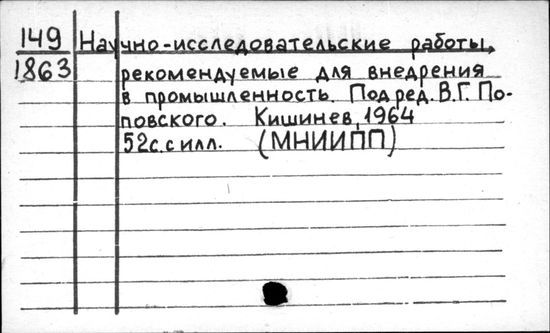 149
1863
Научно-исследовательские работы,
рекомендуемые для внедрения
в промышленность. Под ред. В.Г. По-
повского. Кишинев, 1964
52с. с илл. (МНИИПП)